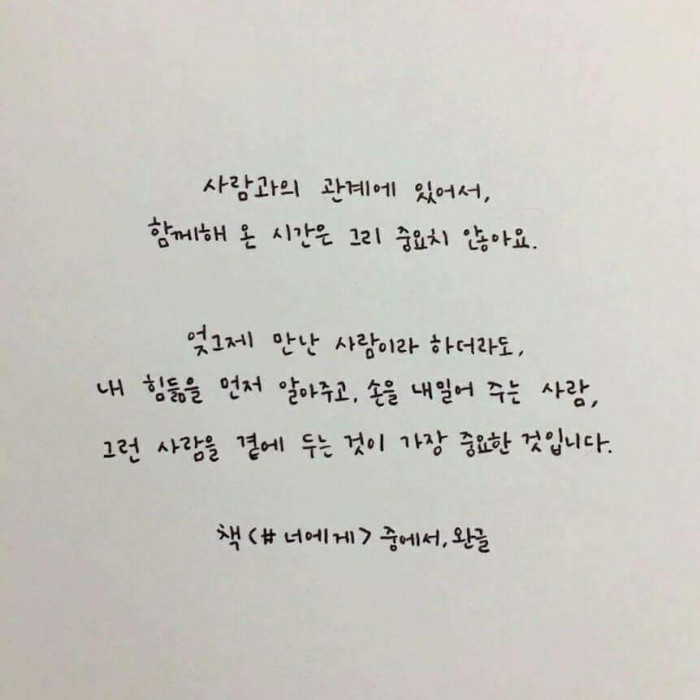 사람과의 관계에 있어서,
함께해 온 시간은 그리 중요치 않아요.
엊그제 만난 사람이라 하더라도,
내 힘듦을 먼저 알아주고, 손을 내밀어 주는 사람,
그런 사람을 곁에 두는 것이 가장 중요한 것입니다.
책 <# 너에게> 중에서, 완글